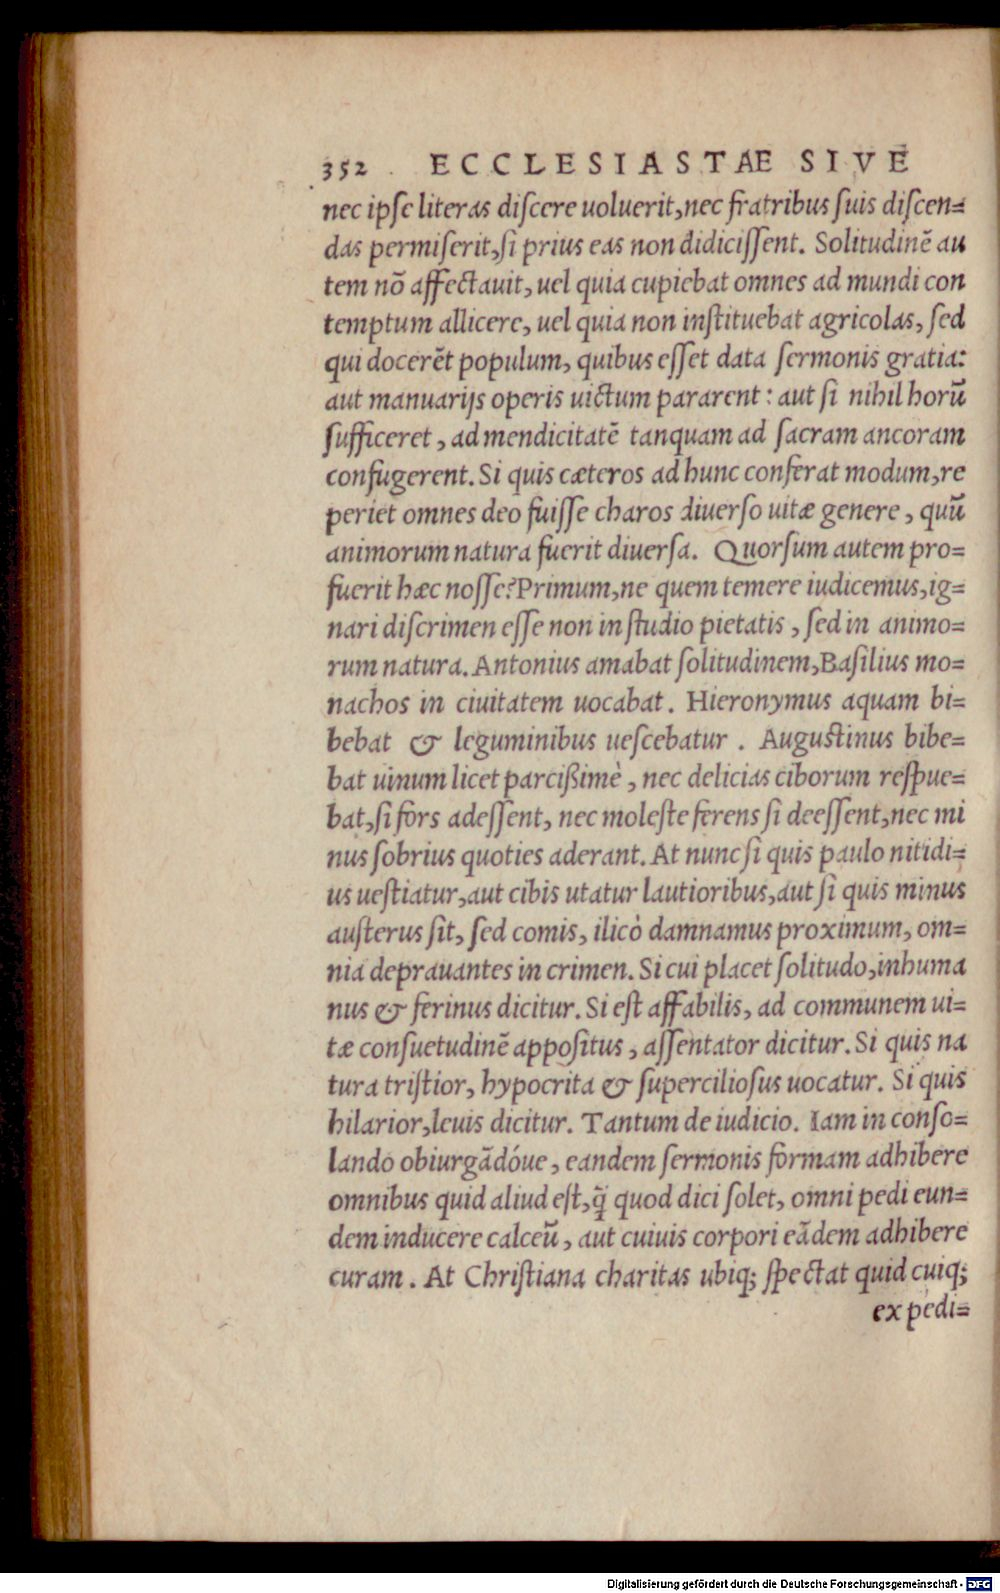 352 ECCLESIASTAE SIVE
nec ipſe literas diſcere uoluerit, nec fratribus ſuis diſcen=
das permiſerit, ſi prius eas non didiciſſent. Solitudinē au
tem nō affectauit, uel quia cupiebat omnes ad mundi con
temptum allicere, uel quia non inſtituebat agricolas, ſed
qui docerēt populum, quibus eſſet data ſermonis gratia:
aut manuarijs operis uictum pararent : aut ſi nihil horū
ſufficeret, ad mendicitatē tanquam ad ſacram ancoram
confugerent. Si quis cæteros ad hunc conferat modum, re
periet omnes deo fuiſſe charos diuerſo uitæ genere, quū
animorum natura fuerit diuerſa. Quorſum autem pro=
fuerit hæc noſſe? Primum, ne quem temere iudicemus, ig=
nari diſcrimen eſſe non in ſtudio pietatis, ſed in animo=
rum natura. Antonius amabat ſolitudinem, Baſilius mo=
nachos in ciuitatem uocabat. Hieronymus aquam bi=
bebat & leguminibus ueſcebatur. Auguſtinus bibe=
bat uinum licet parcißimè, nec delicias ciborum reſpue=
bat, ſi fors adeſſent, nec moleſte ferens ſi deeſſent, nec mi
nus ſobrius quoties aderant. At nunc ſi quis paulo nitidi=
us ueſtiatur, aut cibis utatur lautioribus, aut ſi quis minus
auſterus ſit, ſed comis, ilicò damnamus proximum, om=
nia deprauantes in crimen. Si cui placet ſolitudo, inhuma
nus & ferinus dicitur. Si eſt affabilis, ad communem ui=
tæ conſuetudinē appoſitus, aſſentator dicitur. Si quis na
tura triſtior, hypocrita & ſupercilioſus uocatur. Si quis
hilarior, leuis dicitur. Tantum de iudicio. Iam in conſo=
lando obiurgādóue, eandem ſermonis formam adhibere
omnibus quid aliud eſt, q̃ quod dici ſolet, omni pedi eun=
dem inducere calceū, aut cuiuis corpori eādem adhibere
curam. At Chriſtiana charitas ubiq; ſpectat quid cuiq;
expedi=
Digitalisierung gefördert durch die Deutsche Forschungsgemeinschaft - DFG